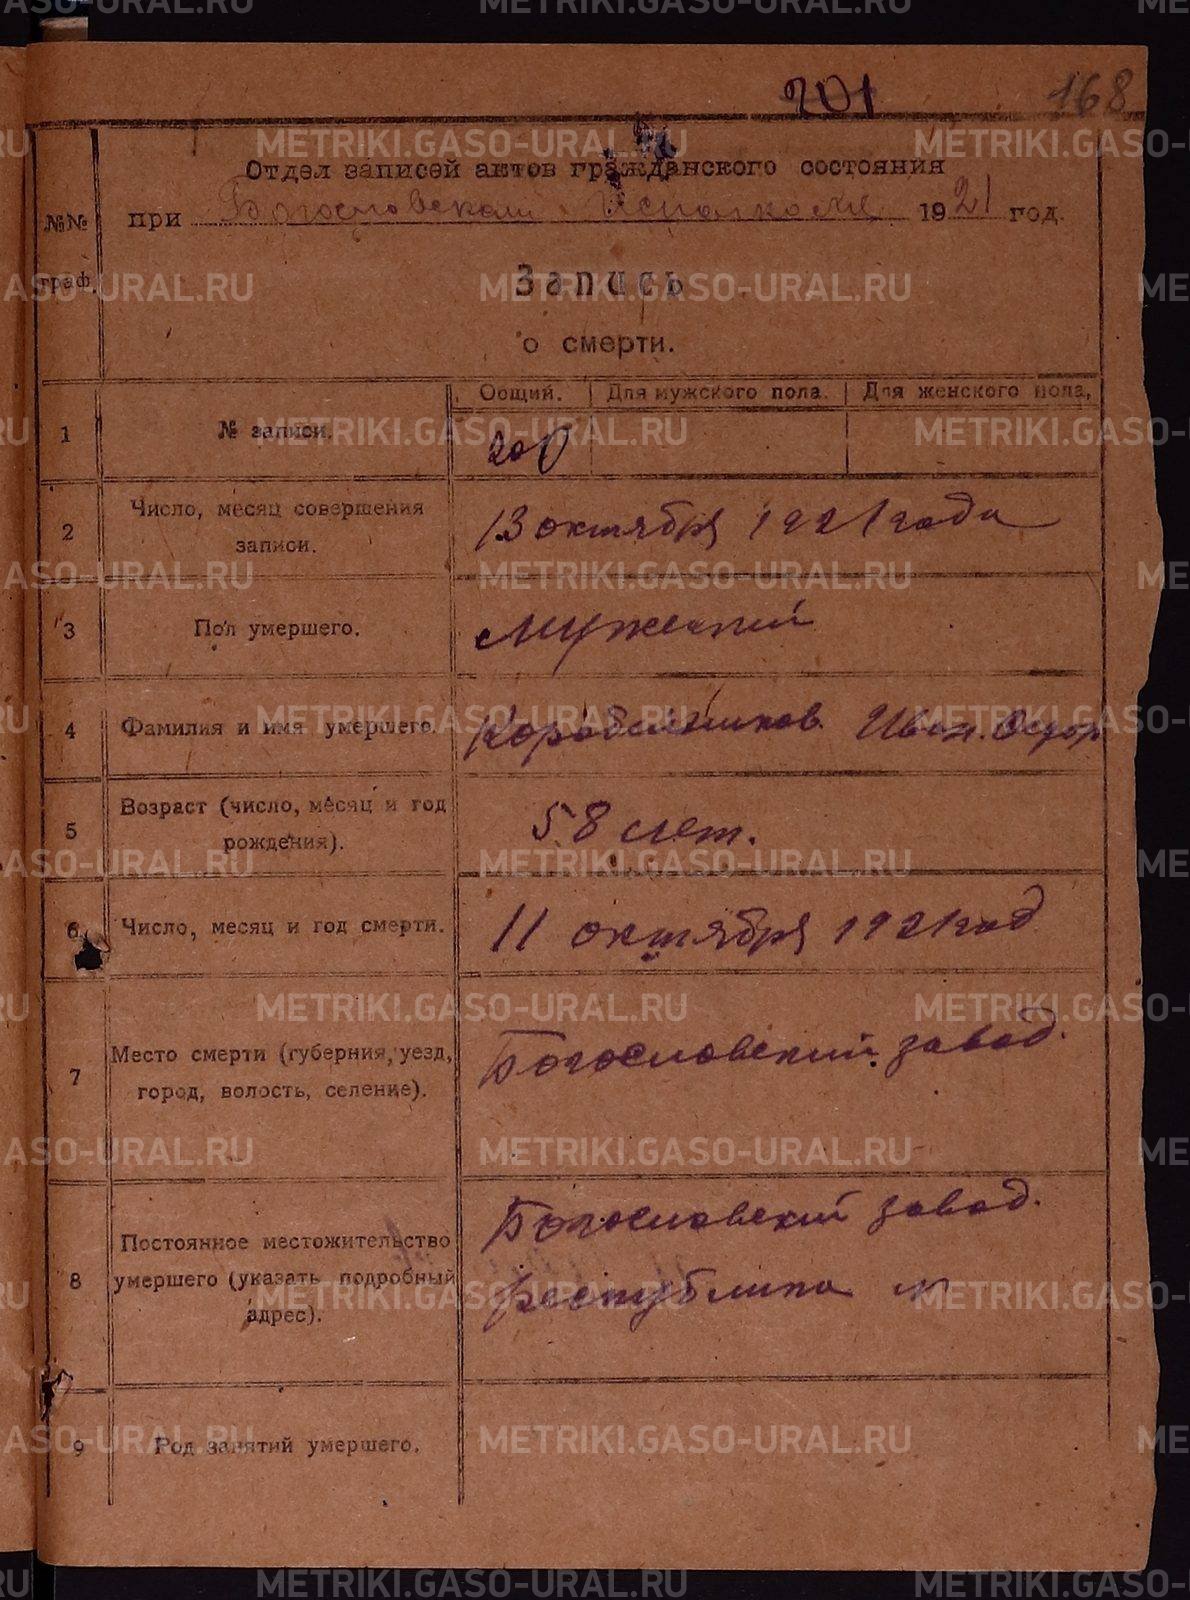 201 168
Отдел записей актов гражданского состояния
при Богословском Исполкоме 1921 год.
№№ граф.
Запись
о смерти.
Общий. Для мужского пола. Для женского пола,
1 № записи. 200
2 Число, месяц совершения
записи.
13 октября 1921 года
3 Пол умершего. Мужский
4 Фамилия и имя умершего. Коробейников. Иван. Федор
5 Возраст (число, месяц и год
рождения).
58 лет.
6 Число, месяц и год смерти. 11 октября 1921 год
7 Место смерти (губерния, уезд,
город, волость, селение).
Богословский завод.
8 Постоянное местожительство
умершего (указать подробный
адрес).
Богословский завод.
республика
9 Род занятий умершего.
METRIKI.GASO-URAL.RU